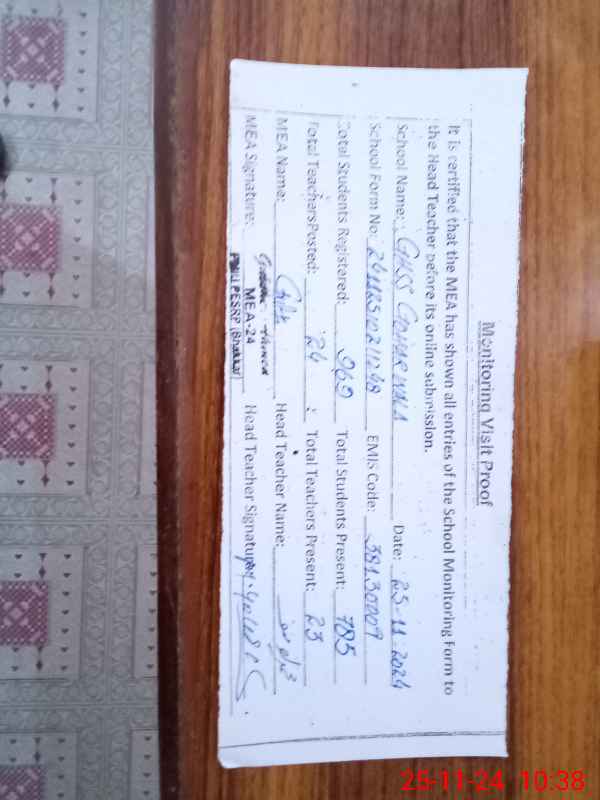 Monitoring Visit Proof
It is certified that the MEA has shown all entries of the School Monitoring Form to
the Head Teacher before its online submission.
School Name: GHSS Date: 25-11-2024
School Form No: EMIS Code: 38130009
Total Students Registered: 969 Total Students Present: 785
Total TeachersPosted: 24 Total Teachers Present: 23
MEA Name: Head Teacher Name:
MEA Signature: Head Teacher Signature:
MEA-24
PMIU PESRP (Bhakkar)
25-11-24 10:38